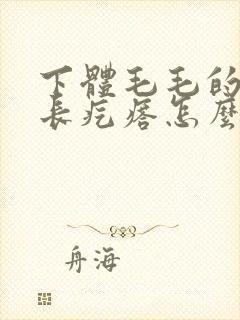 下體毛毛的
長疙瘩怎麼
舟海